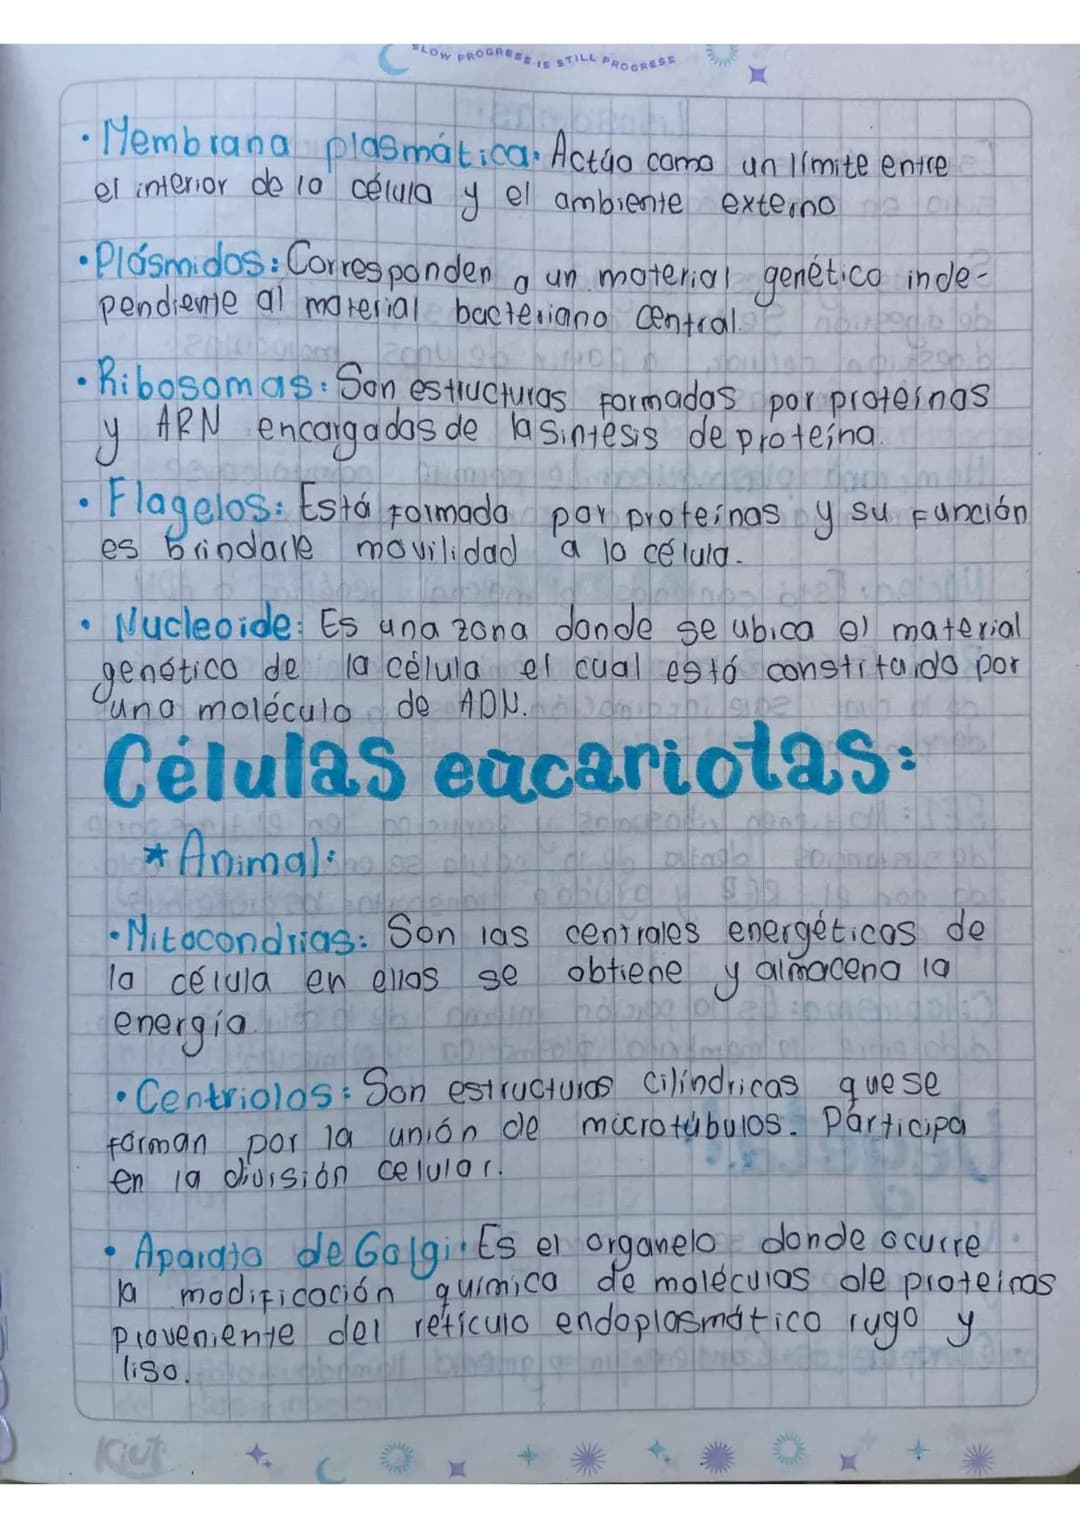 SLOW PROGRESS IS STILL PROGRESS
• Membrana plasmática: Actúa como un límite entre
el interior de la célula y el ambiente externo
• Plásmidos: Corresponden a un material genético inde-
pendiente al material bacteriano central.
• Ribosomas: Son estructuras formadas por proteínas
y ARN encargadas de la síntesis de proteína.
• Flagelos: Está formado por proteínas y su función
es brindarle movilidad a la célula.
• Nucleoide: Es una zona donde se ubica el material
genético de la célula el cual está constituido por
una molécula de ADN.
Células eucariotas:
* Animal:
• Mitocondrias: Son las centrales energéticas de
la célula en ellas se obtiene y almacena la
energía.
• Centriolos: Son estructuras cilíndricas que se
forman por la unión de microtúbulos. Participa
en la división celular.
• Aparato de Golgi: Es el organelo donde ocurre
la modificación química de moléculas de proteínas
proveniente del retículo endoplasmático rugo y
liso.
Kiut